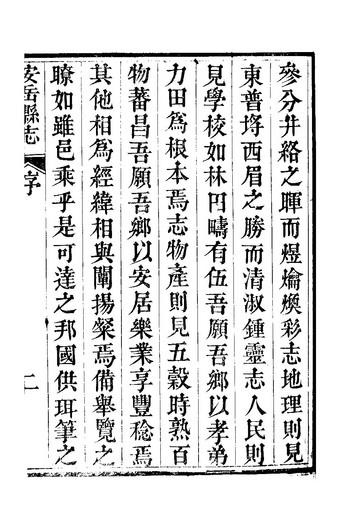 參分井絡之暉而煜爚煥彩志地理則見
東普埓西眉之勝而清淑鍾靈志人民則
見學校如林田疇有伍吾願吾鄉以孝弟
力田為根本焉志物產則見五穀時熟百
物蕃昌吾願吾鄉以安居樂業享豐稔焉
其他相為經緯相與闡揚粲焉備舉覽之
瞭如雖邑乘乎是可達之邦國供珥筆之
安岳縣志
序
二